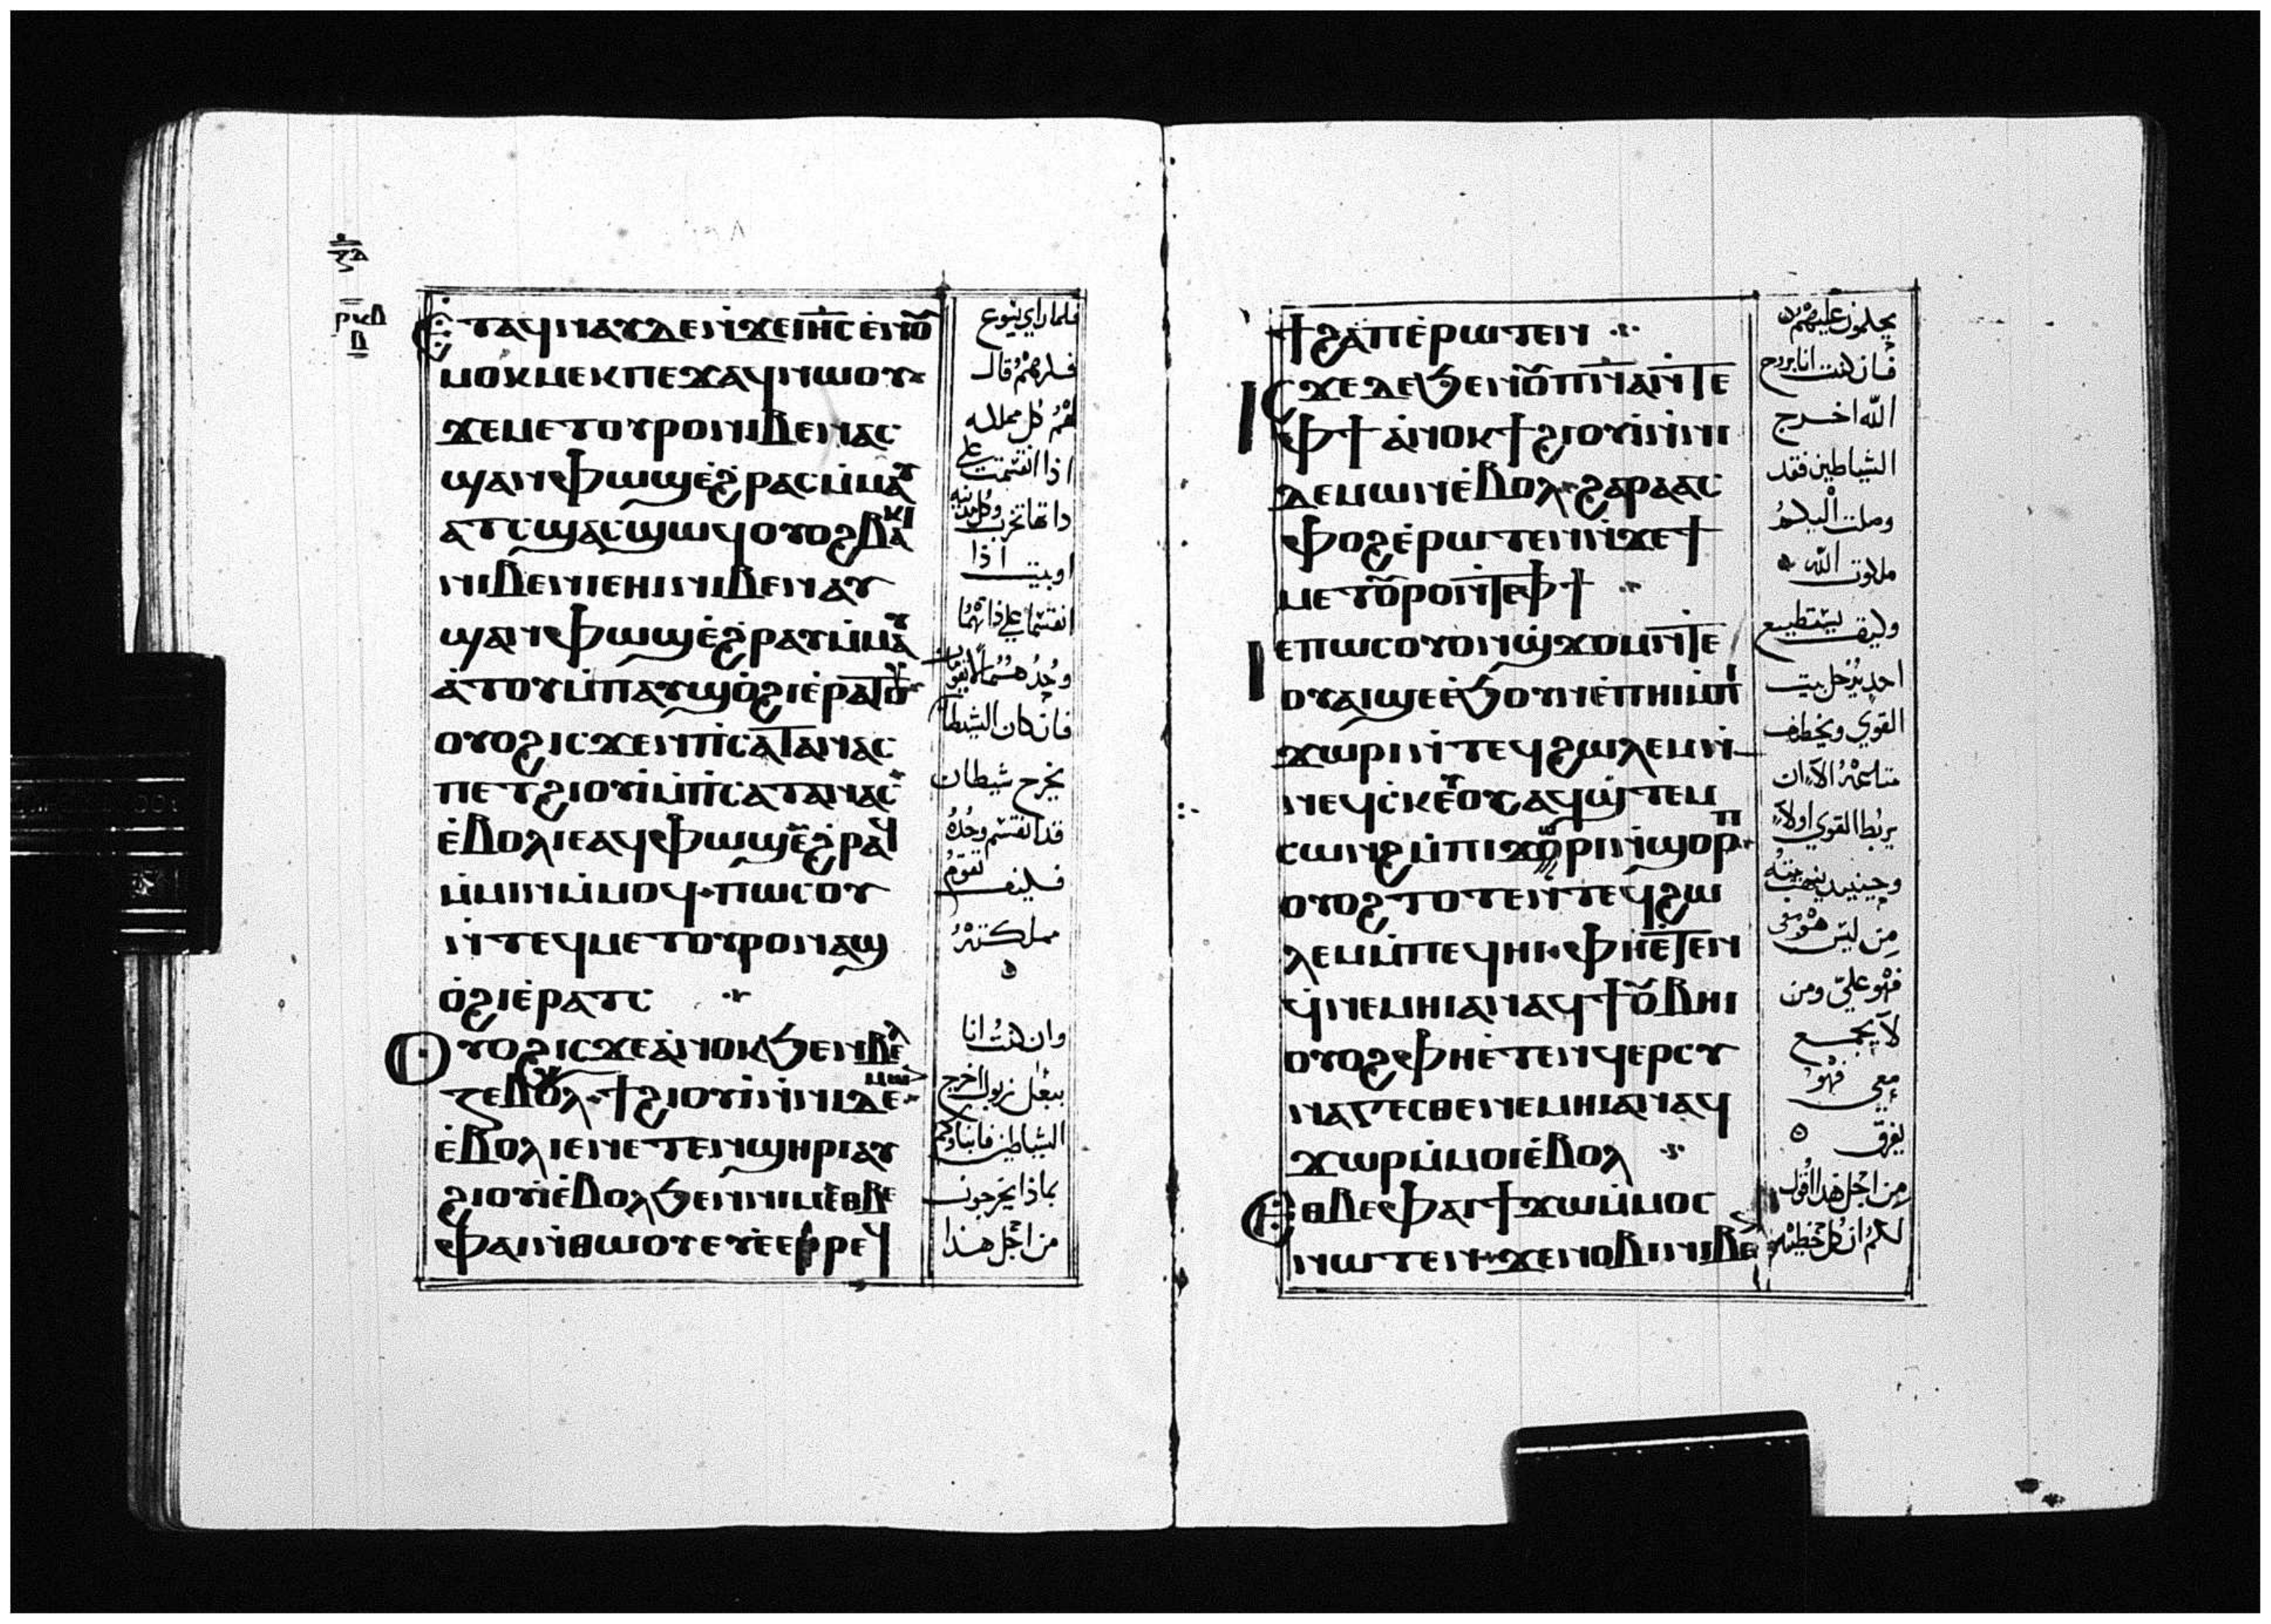 ⲣⲕⲃ
ⲃ
Ⲉⲧⲁϥⲛⲁⲩⲇⲉⲛ̀ϫⲉⲓⲏ̅ⲥ̅ⲉ̀ⲛⲟⲩ
ⲙⲟⲕⲙⲉⲕⲡⲉϫⲁϥⲛⲱⲟⲩ
ϫⲉⲙⲉⲧⲟⲩⲣⲟⲛⲓⲃⲉⲛⲁⲥ
ϣⲁⲛⲫⲱϣⲉ̀ϩⲣⲁⲥⲙ̀ⲙⲁⲩ
ⲁⲧⲥϣⲁⲥϣⲱϥⲟⲩⲟϩⲃⲁⲕⲓ
ⲛⲓⲃⲉⲛⲓⲉⲏⲓⲛⲓⲃⲉⲛⲁⲩ
ϣⲁⲛⲫⲱϣⲉ̀ϩⲣⲁⲩⲙ̀ⲙⲁⲩ
ⲁ̀ⲧⲟⲩⲙ̀ⲡⲁⲩϣⲟ̀ϩⲓⲉ̀ⲣⲁⲧⲟⲩ
ⲟⲩⲟϩⲓⲥϫⲉⲛⲡⲓⲥⲁⲧⲁⲛⲁⲥ
ⲡⲉⲧϩⲓⲟⲩⲓ̀ⲙ̀ⲡⲓⲥⲁⲧⲁⲛⲁⲥ
ⲉ̀ⲃⲟⲗⲓⲉⲁϥⲫⲱϣⲉ̀ϩⲣⲁϥ
ⲙ̀ⲙⲓⲛⲙ̀ⲙⲟϥ·ⲡⲱⲥⲟⲩ
ⲛ̀ⲧⲉϥⲙⲉⲧⲟⲩⲣⲟⲛⲁϣ
ⲟ̀ϩⲓⲉ̀ⲣⲁⲧⲥ
Ⲟⲩⲟϩⲓⲥϫⲉⲁ̀ⲛⲟⲕϧⲉⲛⲃⲉⲗ
ⲍⲉⲃⲟⲩⲗ·ϯϩⲓⲟⲩⲓ̀ⲛ̀ⲛⲓⲇⲉⲙⲱ
ⲉ̀ⲃⲟⲗⲓⲉⲛⲉⲧⲉⲛϣⲏⲣⲓⲁⲩ
ϩⲓⲟⲩⲓ̀ⲉ̀ⲃⲟⲗϧⲉⲛⲛⲓⲙⲉⲑⲃⲉ
ⲫⲁⲓⲛ̀ⲑⲱⲟⲩⲉⲩⲉ̀ⲉⲣⲣⲉϥ
فلما راي يسوع
فكرهم قال
لهم كل مملكه
اذا انقسمت على
ذاتها تخرب وكل مدينه
اوبيت اذا
انقسما على ذاتهما
فان كان الشيطان
يخرج شيطان
قد انقسم وحده
فكيف تقوم
مملكته
وان كنت انا
ببعل زبول اخرج
الشياطين فابناوكم
بماذا يخرجون
من اجل هذا
ϯϩⲁⲡⲉ̀ⲣⲱⲧⲉⲛ
Ⲓⲥϫⲉⲇⲉϧⲉⲛⲟⲩⲡⲛ̅ⲁ̅ⲛ̀ⲧⲉ
ⲫϯⲁ̀ⲛⲟⲕϯϩⲓⲟⲩⲓ̀ⲛ̀ⲛⲓ
ⲇⲉⲙⲱⲛⲉ̀ⲃⲟⲗ·ϩⲁⲣⲁⲁⲥ
ⲫⲟϩⲉ̀ⲣⲱⲧⲉⲛⲛ̀ϫⲉϯ
ⲙⲉⲧⲟⲩⲣⲟⲛ̀ⲧⲉⲫϯ
Ⲓⲉⲡⲱⲥⲟⲩⲟⲛϣϫⲟⲙⲛ̀ⲧⲉ
ⲟⲩⲁⲓϣⲉⲉ̀ϧⲟⲩⲛⲉ̀ⲡⲏⲓⲙ̀ⲡⲓ
ϫⲱⲣⲓⲛ̀ⲧⲉϥϩⲱⲗⲉⲙⲛ̀
ⲛⲉϥⲥⲕⲉⲩⲟⲥⲁϥϣ̀ⲧⲉⲙ
ⲥⲱⲛϩⲙ̀ⲡⲓϫⲱⲣⲓⲛ̀ϣⲟⲣⲡ
ⲟⲩⲟϩⲧⲟⲧⲉⲛ̀ⲧⲉϥϩⲱ
ⲗⲉⲙⲙ̀ⲡⲉϥⲏⲓ·ⲫⲏⲉ̀ⲧⲉⲛ
ϥ̀ⲛⲉⲙⲏⲓⲁⲛⲁϥϯⲟⲩⲃⲏⲓ
ⲟⲩⲟϩⲫⲏⲉ̀ⲧⲉⲛϥⲉⲣⲥⲩ
ⲛⲁⲅⲉⲥⲑⲉⲛⲉⲙⲏⲓⲁⲛⲁϥ
ϫⲱⲣⲙ̀ⲙⲟⲓⲉ̀ⲃⲟⲗ
Ⲉⲑⲃⲉⲫⲁⲓϯϫⲱⲙ̀ⲙⲟⲥ
ⲛⲱⲧⲉⲛ·ϫⲉⲛⲟⲃⲓⲛⲓⲃⲉ
يحكمون عليكم
فان كنت انا بروح
الله اخرج
الشياطين فقد
وصلت اليكم
ملكوت الله
وكيف يستطيع
احد يدخل بيت
القوي ويخطف
متاعه الا ان
يربط القوي اولا
وحينيد ينهب بيته
من ليس هو معي
فهو علي ومن
لا يجمع
معي فهو
يفرق
من اجل هذا اقول
لكم ان كل خطيه